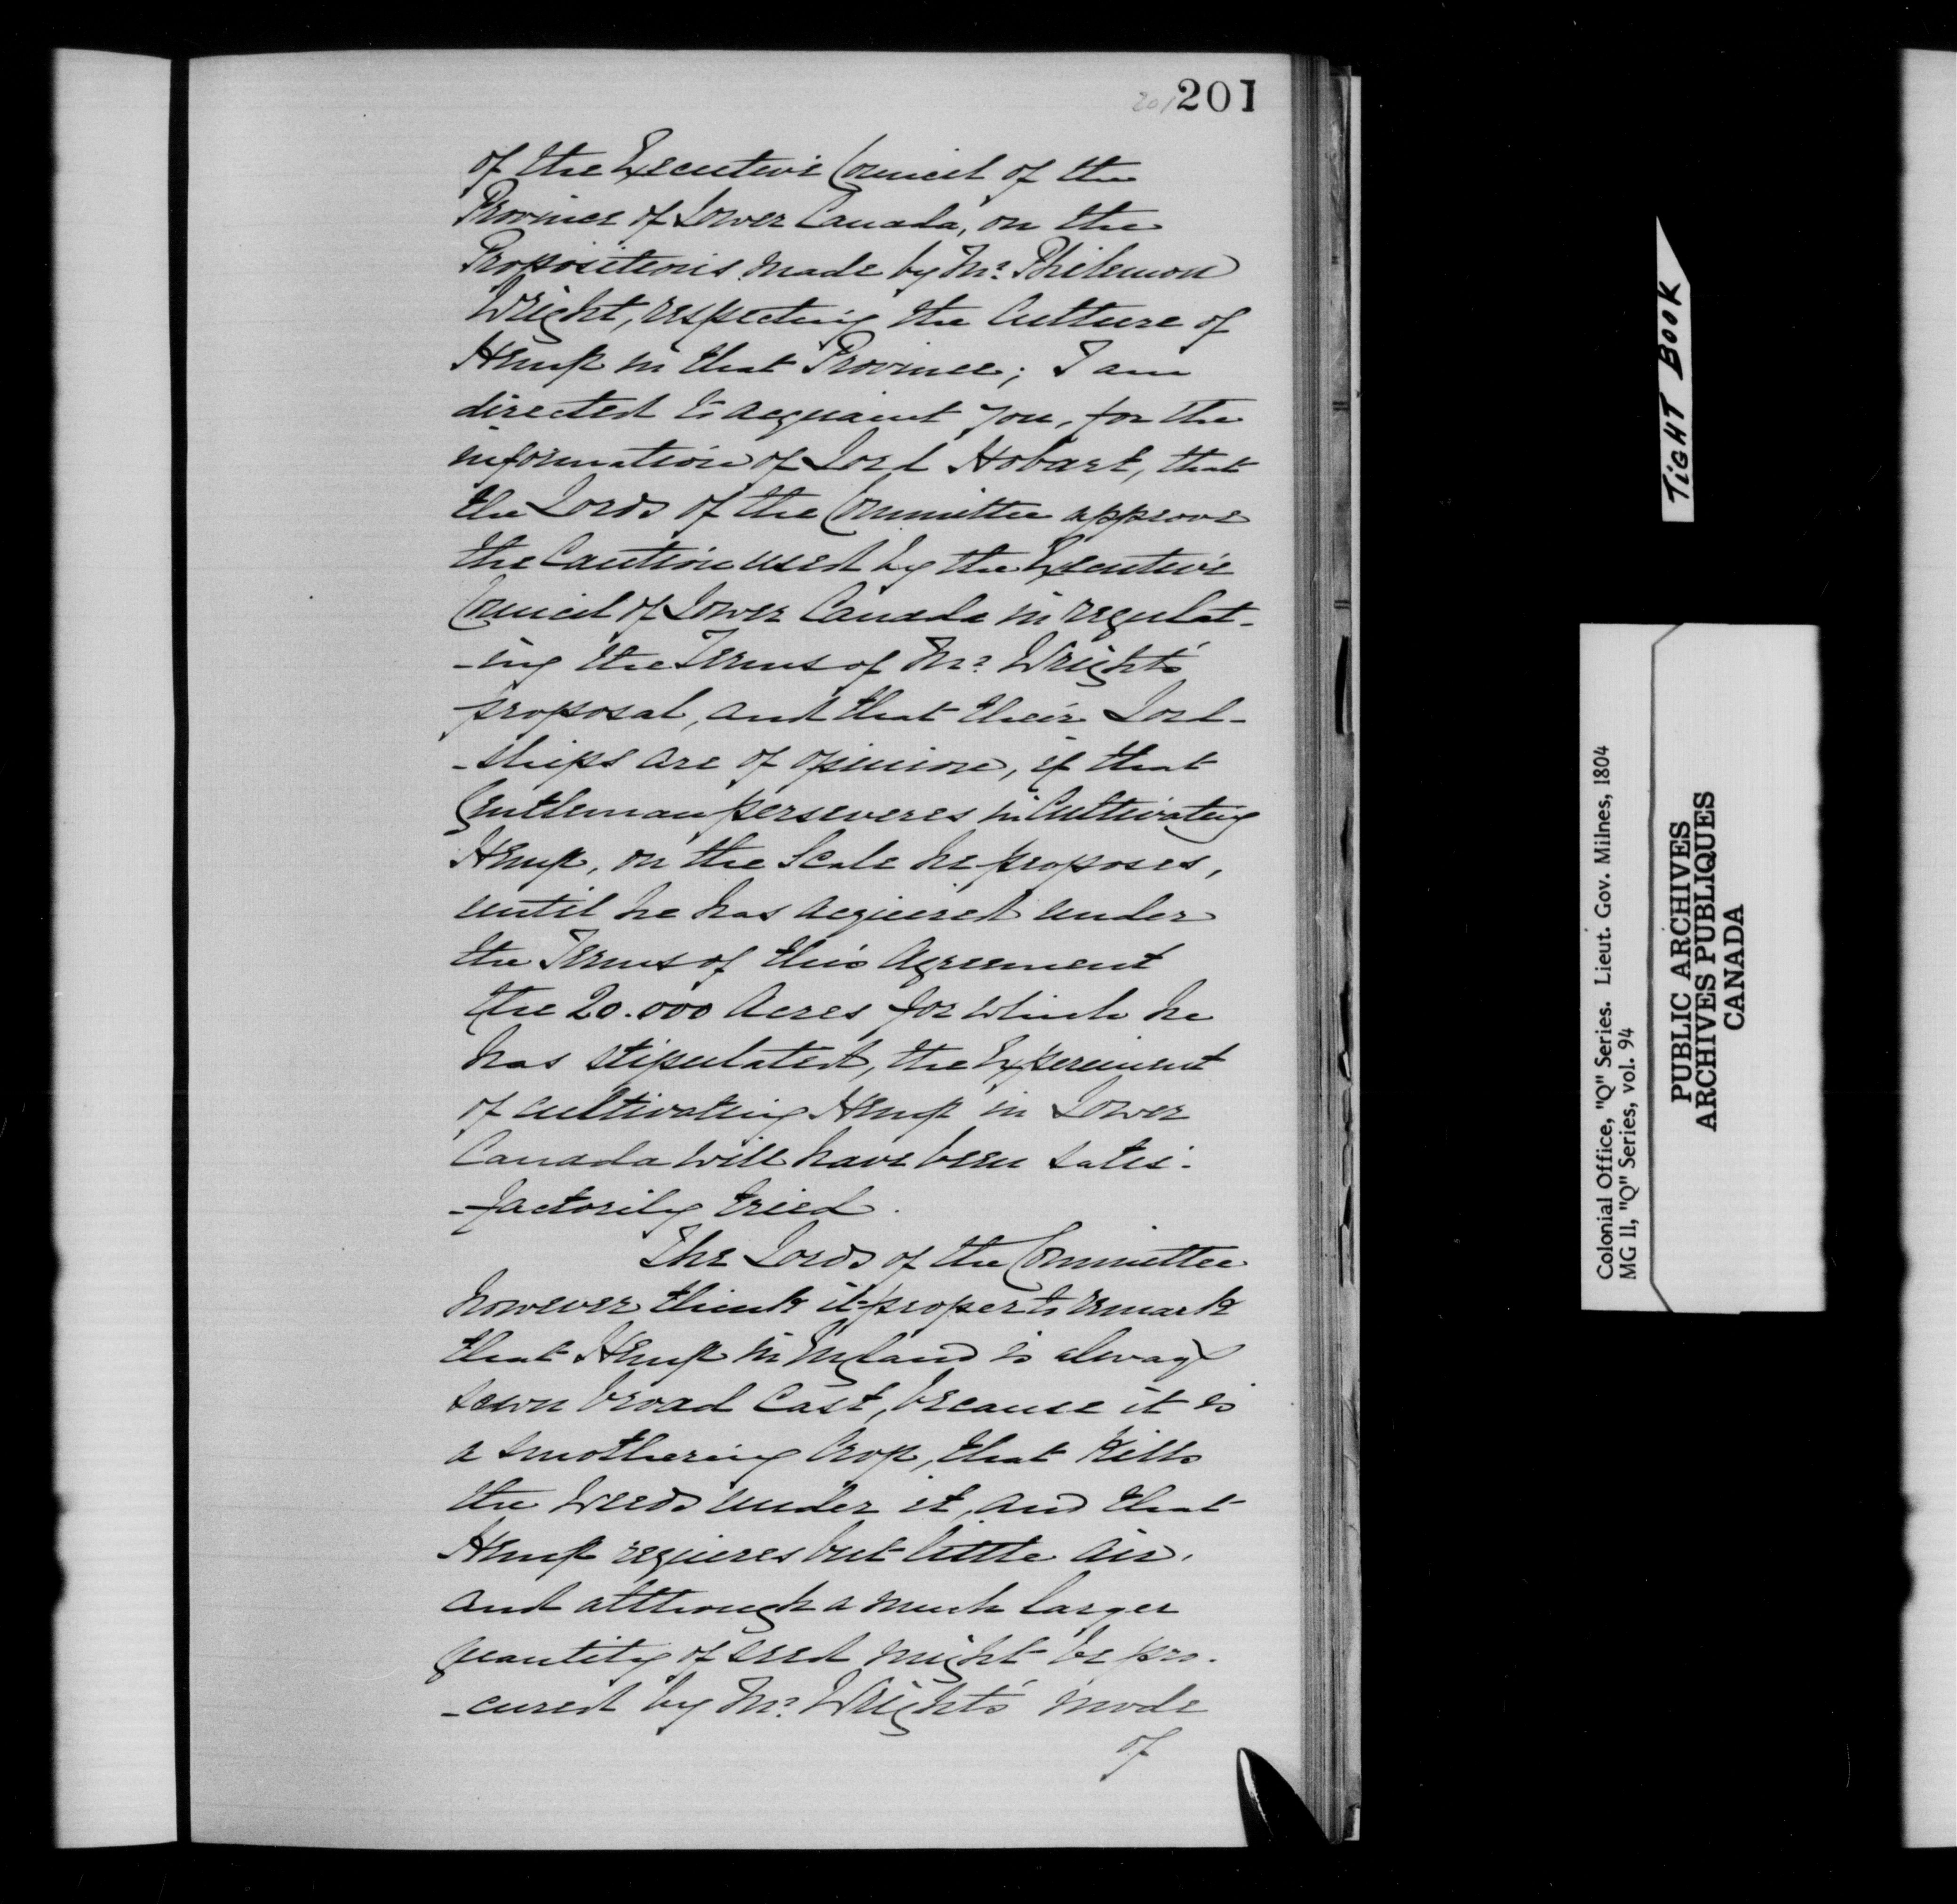 201 201
of the Executive Council of the
Province of Lower Canada, on the
Propositions made by Mr. Philemon
Wright, respecting the Culture of
Hemp in that Province; I am
directed to acquaint you, for the
information of Lord Hobart, that
the Lords of the Committee approve
the Caution used by the Executive
Council of Lower Canada in regulat-
-ing the Terms of Mr. Wright's
proposal, and that their Lord-
-ships are of opinion, if that
Gentleman perseveres in Cultivating
Hemp, on the Scale he proposes,
until he has acquired under
the Terms of this Agreement
the 20.000 Acres for which he
has stipulated, the Experiment
of cultivating Hemp in Lower
Canada will have been satis-
-factorily tried.
The Lords of the Committee
however think it proper to remark
that Hemp in England is always
sown broad Cast, because it is
a smothering Crop, that Kills
the Weeds under it, and that
Hemp requires but little air,
and although a much larger
quantity of seed might be pro-
-cured by Mr. Wright's mode
of
TIGHT BOOK
Colonial Office, "Q" Series. Lieut. Gov. Milnes, 1804
MG 11, "Q" Series, vol. 94
PUBLIC ARCHIVES
ARCHIVES PUBLIQUES
CANADA